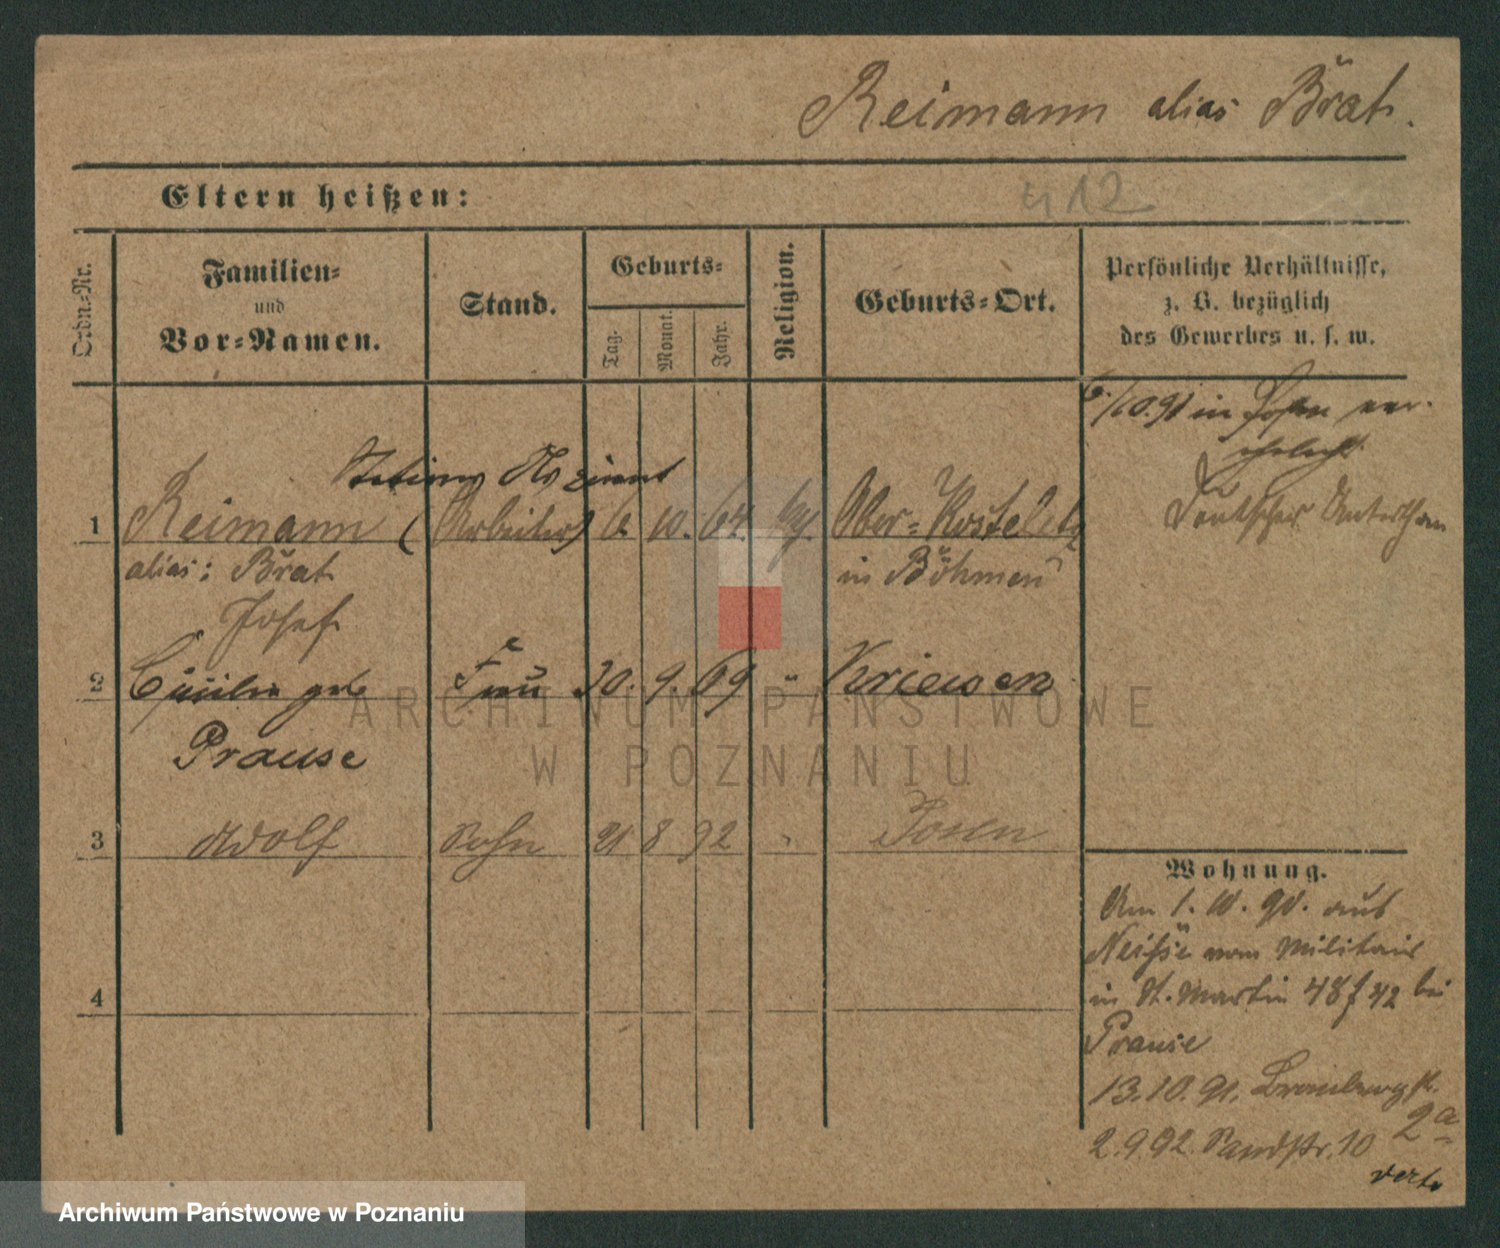 Reimann alias Břat.
Eltern heißen:
412
Ordn=Nr.
Familien=
und
Vor=Namen.
Stand.
Geburts=
Tag.
Monat.
Jahr.
Religion.
Geburts=Ort.
Persönliche Verhältnisse,
z. B. bezüglich
des Gewerbes u. s. w.
6./10.91 in Posen ver-
ehelicht
Stations
1 Reimann (Arbeiter) 6. 10. 64. Ober=Kosteletz
Deutscher Unterthan
alias: Břat
in Böhmen
Josef
2 Cäcilie geb. Frau 30. 9. 69 " Kriewen
Prause
3 Adolf Sohn 21 8 92 " Posen
Wohnung.
Am 1. 10. 90. aus
Neisse vom Militair
in St. Martin 48 f 42 bei
Prause
13.10.91. Brombergstr.
2a
2.9.92. Sandstr. 10
verte
4
ARCHIWUM PAŃSTWOWE
W POZNANIU
Archiwum Państwowe w Poznaniu